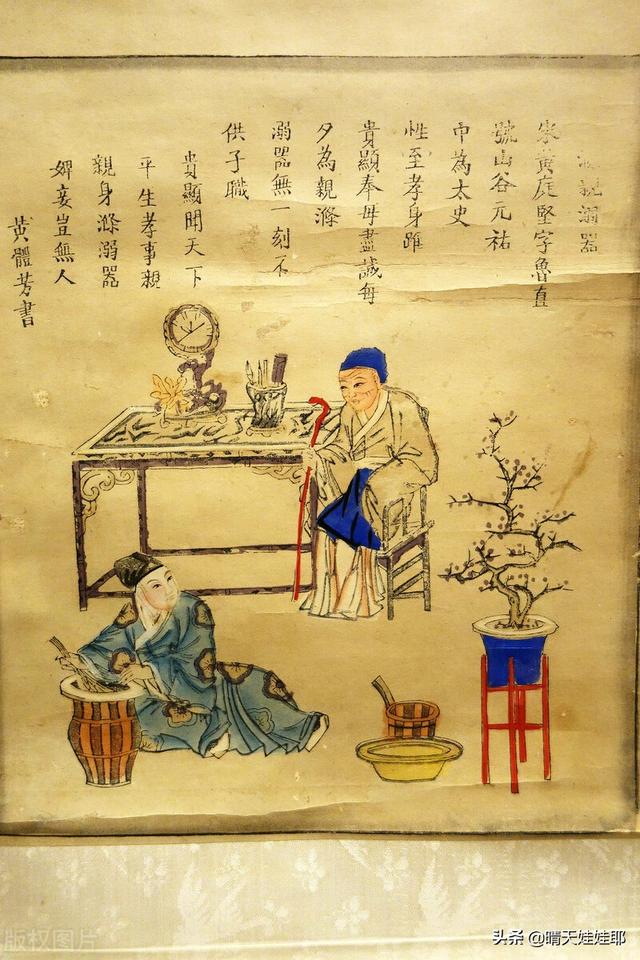 親溺器
宋黃庭堅字魯直
號山谷元祐
中為太史
性至孝身雖
貴顯奉母盡誠每
夕為親滌
溺器無一刻不
供子職
貴顯聞天下
平生孝事親
親身滌溺器
婢妾豈無人
黃體芳書
版权图片
头条 @晴天娃娃耶